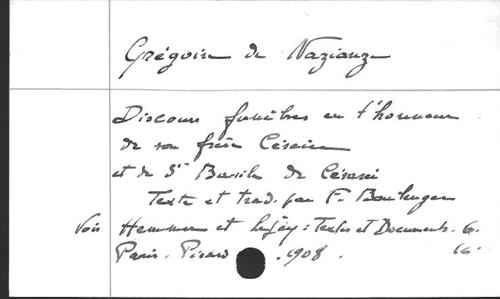 Grégoire de Nazianze
Discours funèbres en l'honneur
de son frère Césaire
et de St Basile de Césarée
Texte et trad. par F. Boulenger
Voir Hemmer et Lejay : Textes et Documents. G.
Paris. Picard . 1908 . 16.